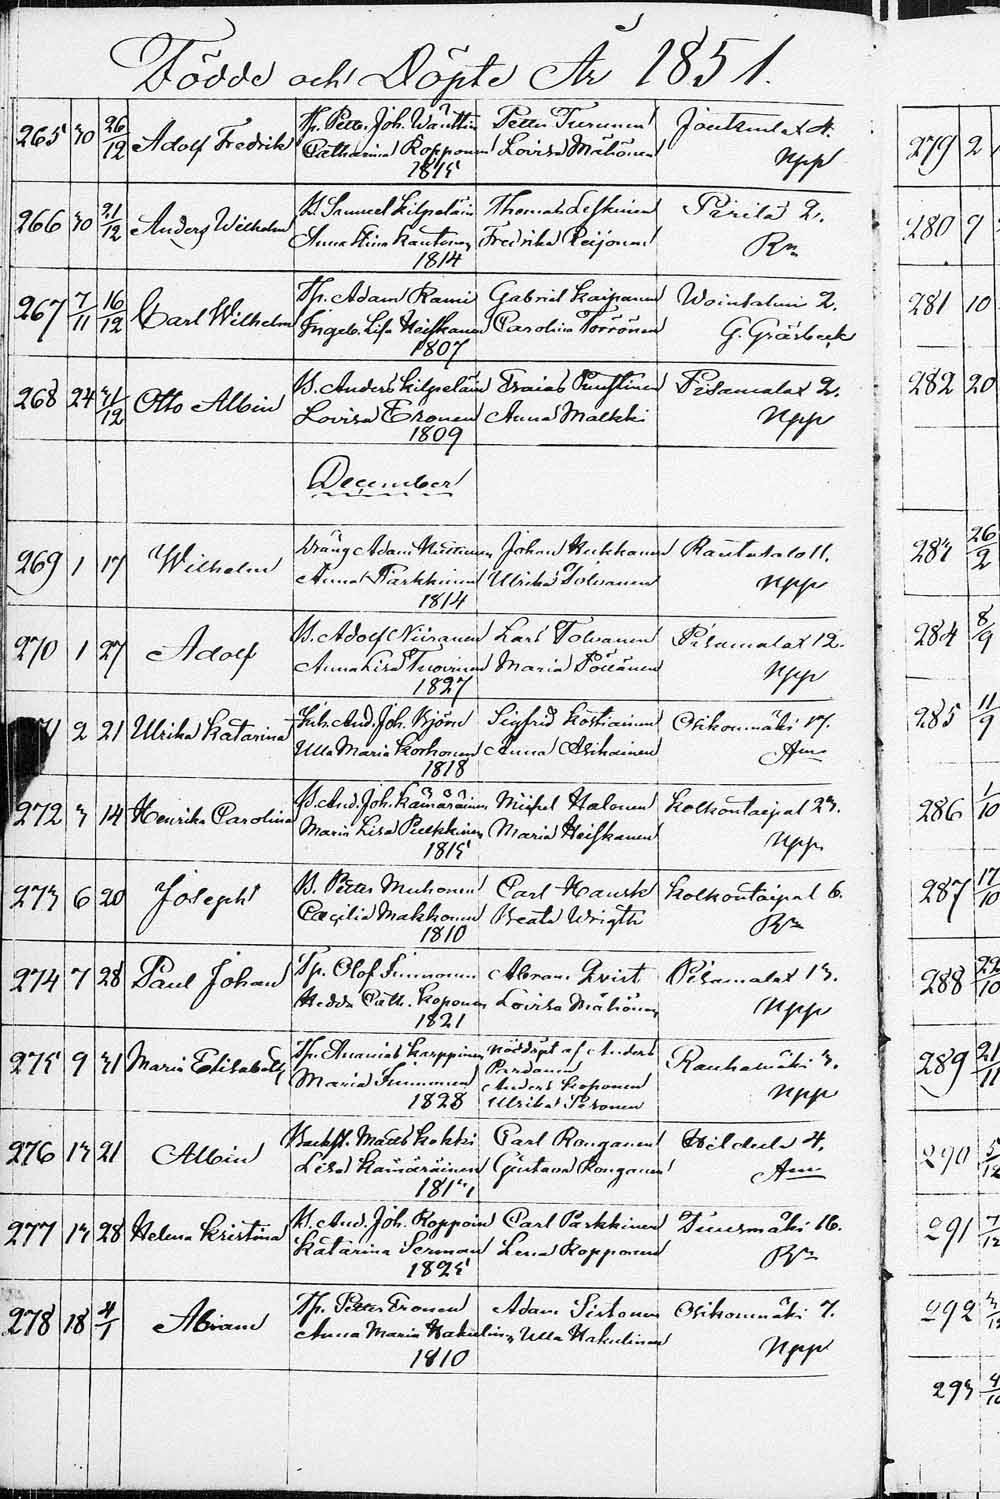 Födde och Döpte År 1851.
265 30 26/12 Adolf Fredrik Tp. Pett. Joh. Wänttin Petter Turunen Joutsulax 4.
Catharina Kopponen Lovisa Mähönen Npp
1815
266 30 21/12 Anders Wilhelm B. Samuel Kilpeläin Thomas Leskinen Pirilä 2.
Anna Stina Kautonen Fredrika Reijonen Rn
1814
267 7/11 16/12 Carl Wilhelm Tp. Adam Rami Gabriel Kaipanen Wointalmi 2.
Ingeb. Lisa Heiskanen Carolina Törrönen G. Gräsbeck
1807
268 24 31/12 Otto Albin B. Anders Kilpeläin Esaias Puustinen Pisamalax 2.
Lovisa Eronen Anna Malkki Npp
1809
December
269 1 17 Wilhelm Dräng Adam Johan Kukkanen Rautasalo 11.
Anna Parkkinen Ulrika Tolvanen Npp
1814
270 1 27 Adolf B. Adolf Niiranen Lars Tolvanen Pisamalax 12.
Anna Lisa Tuovinen Maria Pöllänen Npp
1827
2 21 Ulrika Katarina Inh. And. Joh. Björn Sigfrid Kostiainen Osikonmäki 17.
Ulla Maria Korhonen Anna Asikainen Am
1818
272 3 14 Henrika Carolina B. And. Joh. Kämäräinen Mickel Halonen Kolkontaipal 23.
Maria Lisa Pulkkinen Maria Heiskanen Npp
1815
273 6 20 Joseph B. Petter Muhonen Carl Hauck Kolkontaipal 6.
Cæcilia Makkonen Beata Wrigth Rn
1810
274 7 28 Paul Johan Tp. Olof Immonen Abram Qvist Pisamalax 13.
Hedda Cath. Koponen Lovisa Mähönen Npp
1821
275 9 31 Maria Elisabeth Tp. Ananias Karppinen Nöddöpt af Anders
Pardanen Rauhamäki 3.
Maria Immonen Anders Koponen Npp
1828 Ulrika Toronen
276 13 21 Albin Backst. Matts Kokki Carl Ronganen Hildula 4.
Lisa Kämäräinen Gustava Ronganen Am
1813
277 13 28 Helena Kristina B. And. Joh. Koppoin Carl Parkkinen Tuusmäki 16.
Katarina Serman Lena Kopponen Rn
1825
278 18 4/1 Abram Tp. Petter Eronen Adam Sistonen Osikonmäki 7.
Anna Maria Hakulinen Ulla Hakulinen Npp
1810
279 2
280 9
281 10
282 20
283 26/2
284 8/9
285 11/9
286 1/10
287 17/10
288 22/10
289 21/11
290 5/12
291 7/12
292 3/12
293 4/10